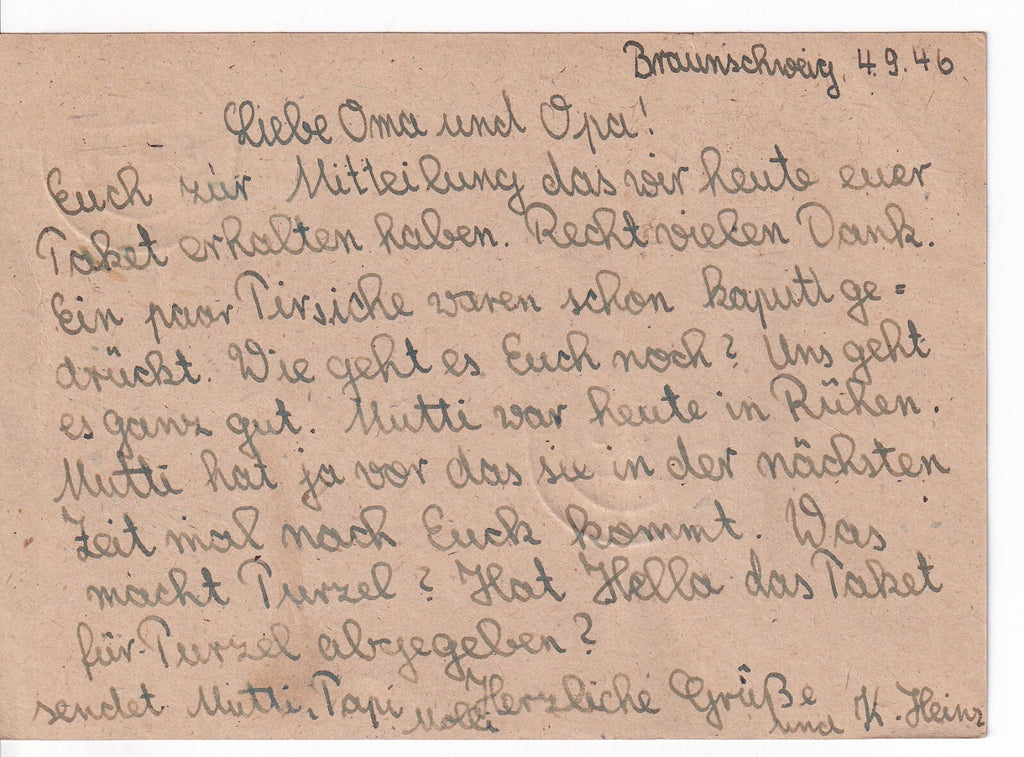 Braunschweig, 4.9.46
Liebe Oma und Opa!
Euch zur Mitteilung das wir heute euer
Paket erhalten haben. Recht vielen Dank.
Ein paar Pirsiche waren schon kaputt ge=
drückt. Wie geht es Euch noch? Uns geht
es ganz gut. Mutti war heute in Rühen.
Mutti hat ja vor das sie in der nächsten
Zeit mal nach Euch kommt. Was
macht Purzel? Hat Hella das Paket
für Purzel abgegeben?
Herzliche Grüße
sendet Mutti, Papi Molli und K. Heinz